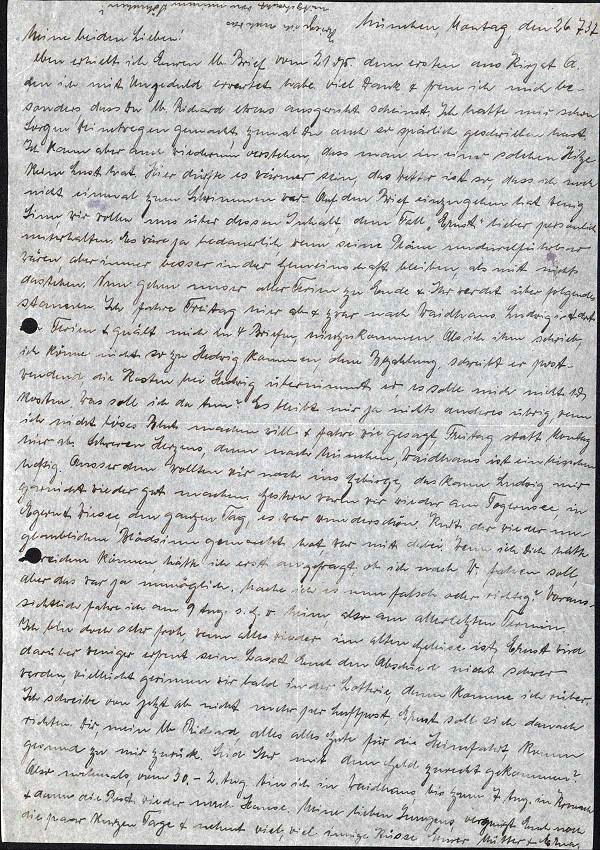 München, Montag, den 26.7.37
Meine beiden Lieben!
Eben erhielt ich Euren lb. Brief vom 21. ds. dem ersten aus Kirjat A.
den ich mit Ungeduld erwartet habe. Viel Dank & freue ich mich be-
sonders dass Du lb. Richard etwas ausgeruht scheinst. Ich hatte mir schon
Sorgen Deinetwegen gemacht, zumal Du auch so spärlich geschrieben hast.
Ich kann aber auch wiederum verstehen, dass man in einer solchen Hitze
keine Lust hat. Hier dürfte es wärmer sein, das Wetter ist so, dass ich noch
nicht einmal zum Schwimmen war. Auf den Brief einzugehen hat wenig
Sinn wir wollen uns über dessen Inhalt, dem Fall "Ernst" lieber persönlich
unterhalten. Es wäre ja bedauerlich, wenn seine Pläne undurchführbar
wären, aber immer besser in der Gemeinschaft bleiben, als mit nichts
dastehen. Nun gehen unser aller Ferien zu Ende & Ihr werdet über folgendes
staunen. Ich fahre Freitag hier ab & zwar nach Waidhaus. Ludwig ist dort
in Ferien & quält mich in 4 Briefen hinzukommen. Als ich ihm schrieb,
ich könne nicht so zu Hedwig kommen, ohne Bezahlung, schreibt er post-
wendend die Kosten bei Hedwig übernimmt er, es solle mich nicht 1 ₰
kosten. Was soll ich da tun? Es bleibt mir ja nichts anderes übrig wenn
ich nicht böses Blut machen will & fahre wie gesagt Freitag statt Montag
hier ab. Schweren Herzens, denn nach München, Waidhaus ist ein bisschen
heftig. Ausserdem wollten wir noch ins Gebirge, das kann Ludwig mir
garnicht wieder gut machen. Gestern waren wir wieder am Tegernsee, in
Egern & Wiessee den ganzen Tag, es war wunderschön. Kurt der wieder un-
glaublichen Blödsinn gemacht hat war mit dabei. Wenn ich Dich hätte
erreichen können hätte ich erst angefragt ob ich nach W. fahren soll,
aber das war ja unmöglich. Mache ich es nun falsch oder richtig? Voraus-
sichtlich fahre ich am 9. Aug. s. G. w. heim, also am allerletzten Termin.
Ich bin doch sehr froh, wenn alles wieder im alten Geleise ist, Ernst wird
darüber weniger erfreut sein. Lasst Euch den Abschied nicht schwer
werden, vielleicht gewinnen wir bald in der Lotterie, dann komme ich rüber.
Ich schreibe von jetzt ab nicht mehr per Luftpost, Ernst soll sich danach
richten. Dir mein lb. Richard alles alles Gute für die Heimfahrt, komm
gesund zu mir zurück. Seid Ihr mit dem Geld zurecht gekommen?
Also nochmals, vom 30. - 2. Aug. bin ich in Waidhaus bis zum 7. Aug. in
& dann die Post wieder nach Hause. Meine lieben Jungens vergnügt Euch noch
die paar kurzen Tage & nehmt viel, viel innige Küsse Eurer Mutter &